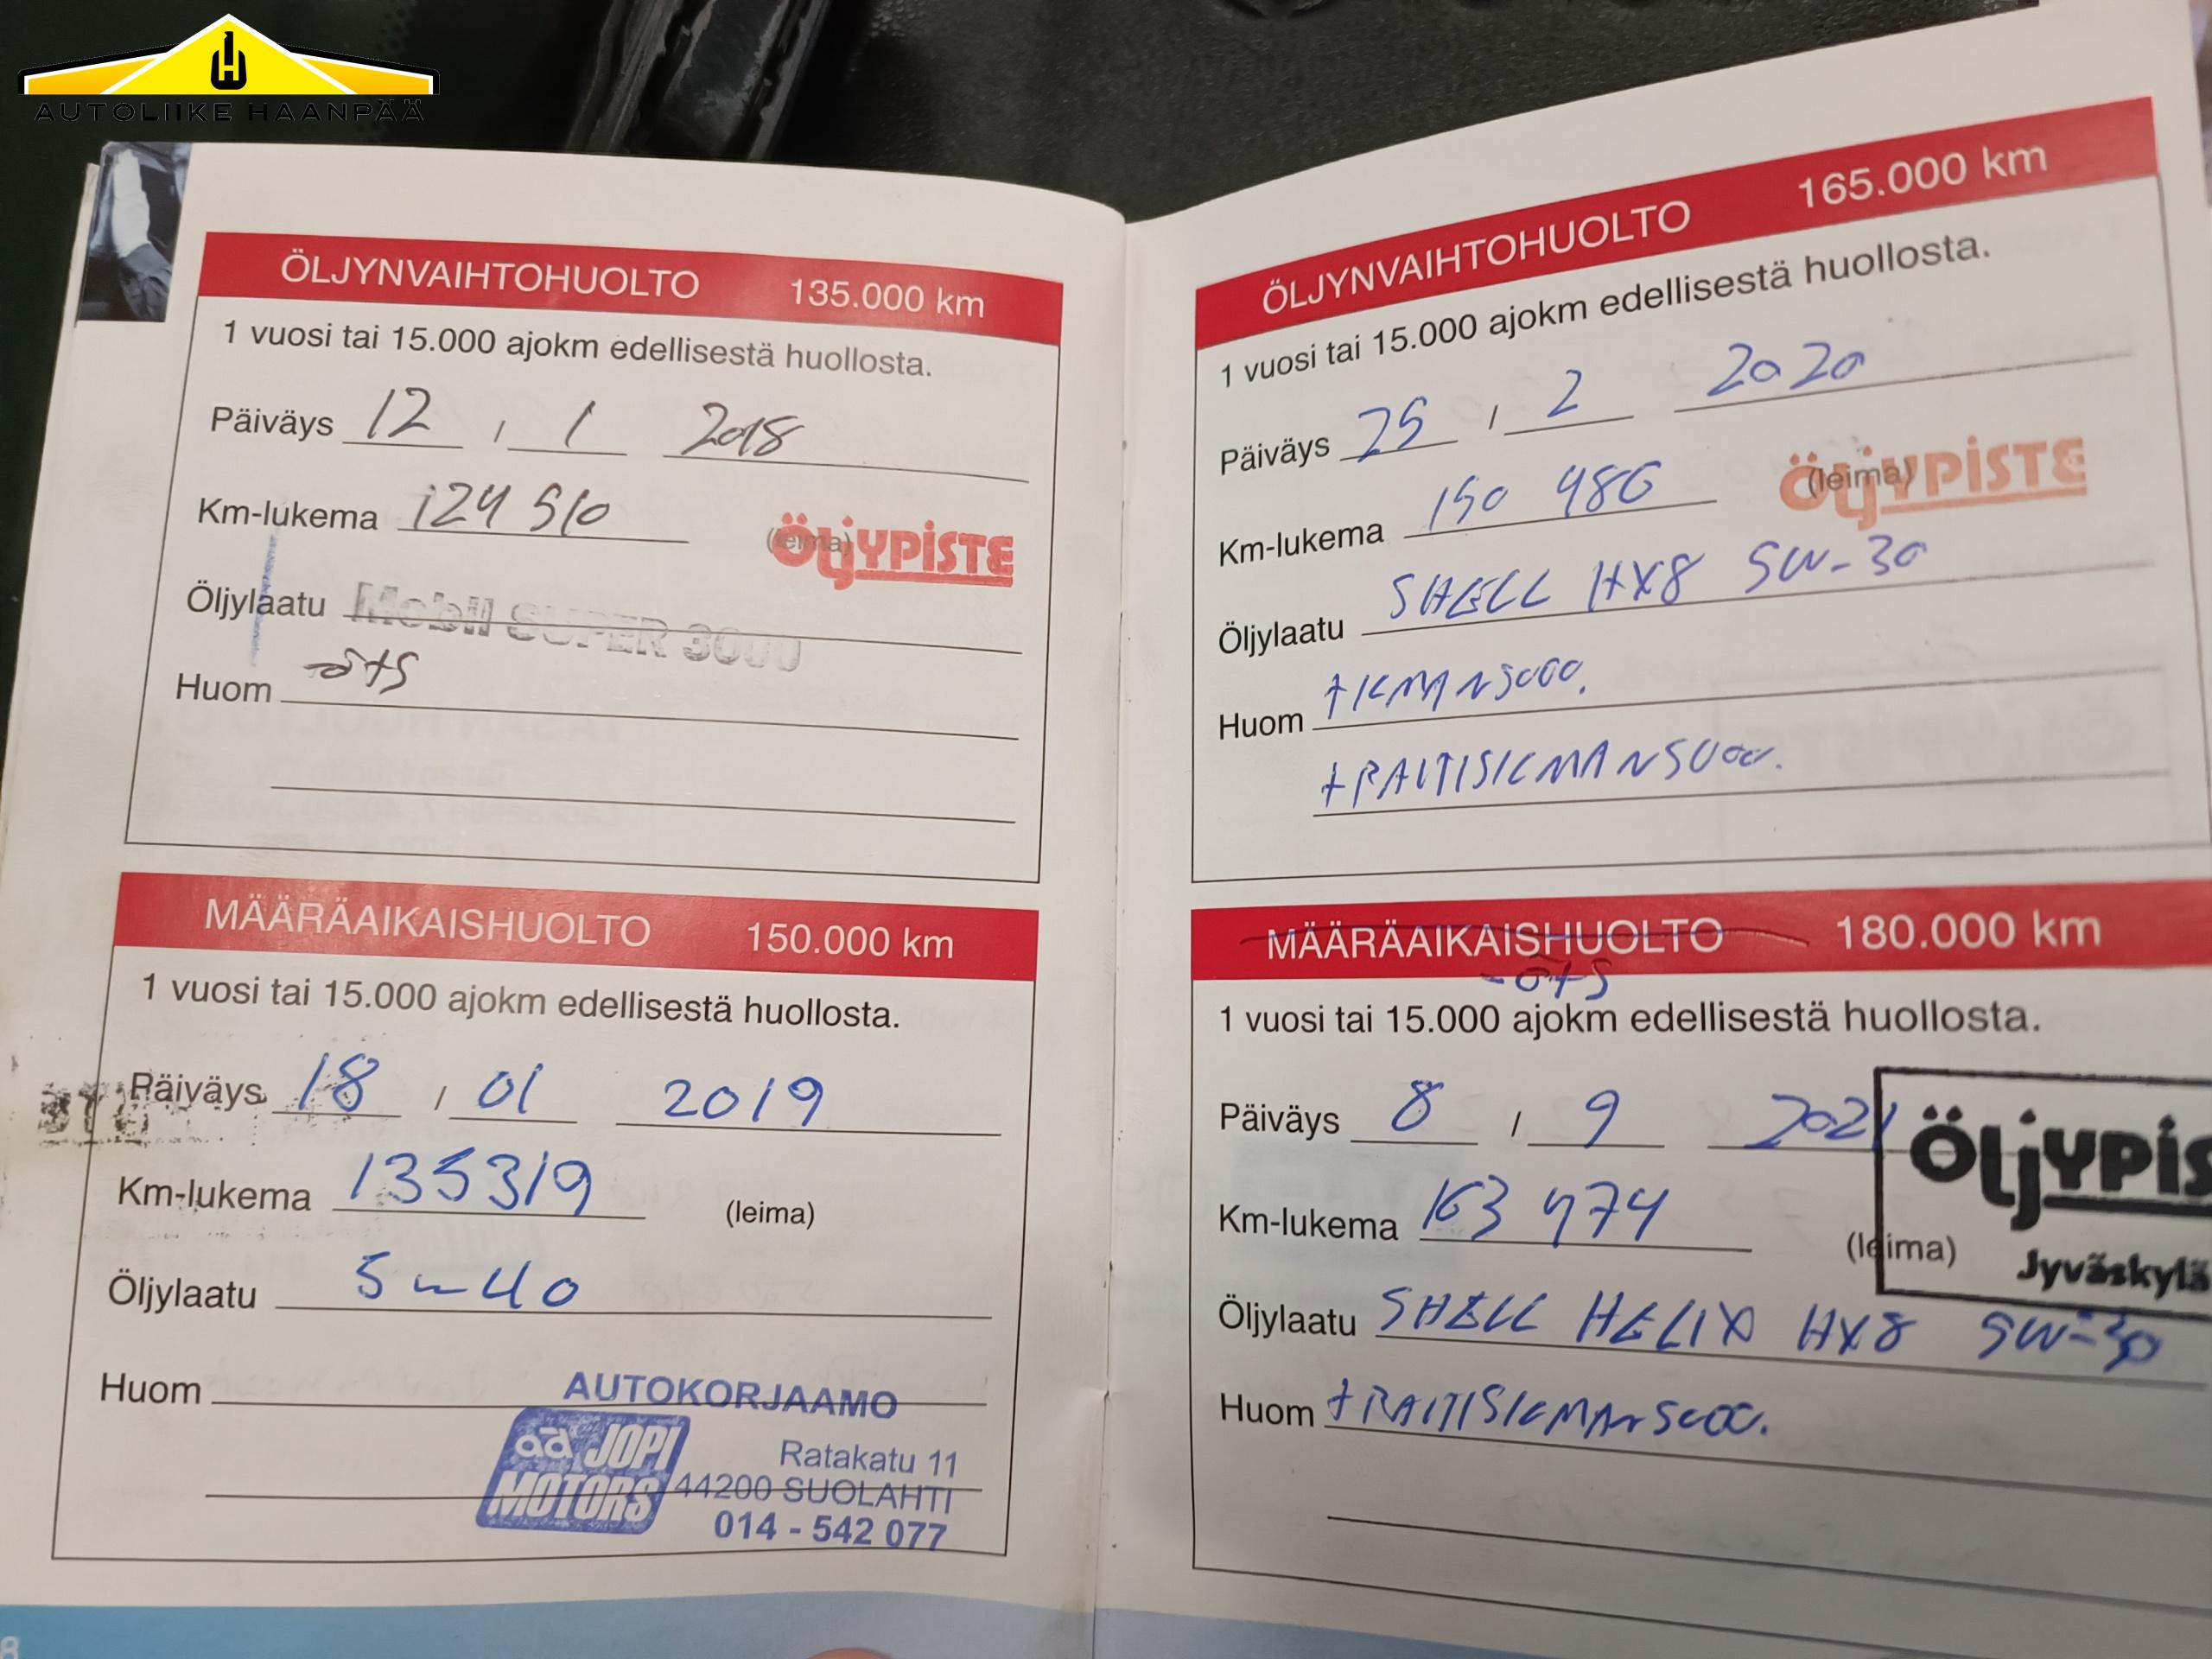 AUTOLIIKE HAANPÄÄ
ÖLJYNVAIHTOHUOLTO 135.000 km
1 vuosi tai 15.000 ajokm edellisestä huollosta.
Päiväys 12 / 1 2018
Km-lukema 124 510
(leima) ÖLJYPISTE
Öljylaatu Mobil SUPER 3000
Huom -öts
MÄÄRÄAIKAISHUOLTO 150.000 km
1 vuosi tai 15.000 ajokm edellisestä huollosta.
Päiväys 18 / 01 2019
Km-lukema 135319 (leima)
Öljylaatu 5w40
Huom
AUTOKORJAAMO
ad JOPI
MOTORS
Ratakatu 11
44200 SUOLAHTI
014 - 542 077
8
ÖLJYNVAIHTOHUOLTO 165.000 km
1 vuosi tai 15.000 ajokm edellisestä huollosta.
Päiväys 25 / 2 2020
Km-lukema 150 486 (leima) ÖLJYPISTE
Öljylaatu SHELL HX8 5W-30
Huom
+RAITISILMAN SUOD.
MÄÄRÄAIKAISHUOLTO 180.000 km
-öts
1 vuosi tai 15.000 ajokm edellisestä huollosta.
Päiväys 8 / 9 2021
ÖLJYPIS
Km-lukema 163 474 (leima)
Jyväskylä
Öljylaatu SHELL HELIX HX8 5W-30
Huom +RAITISILMAN SUOD.